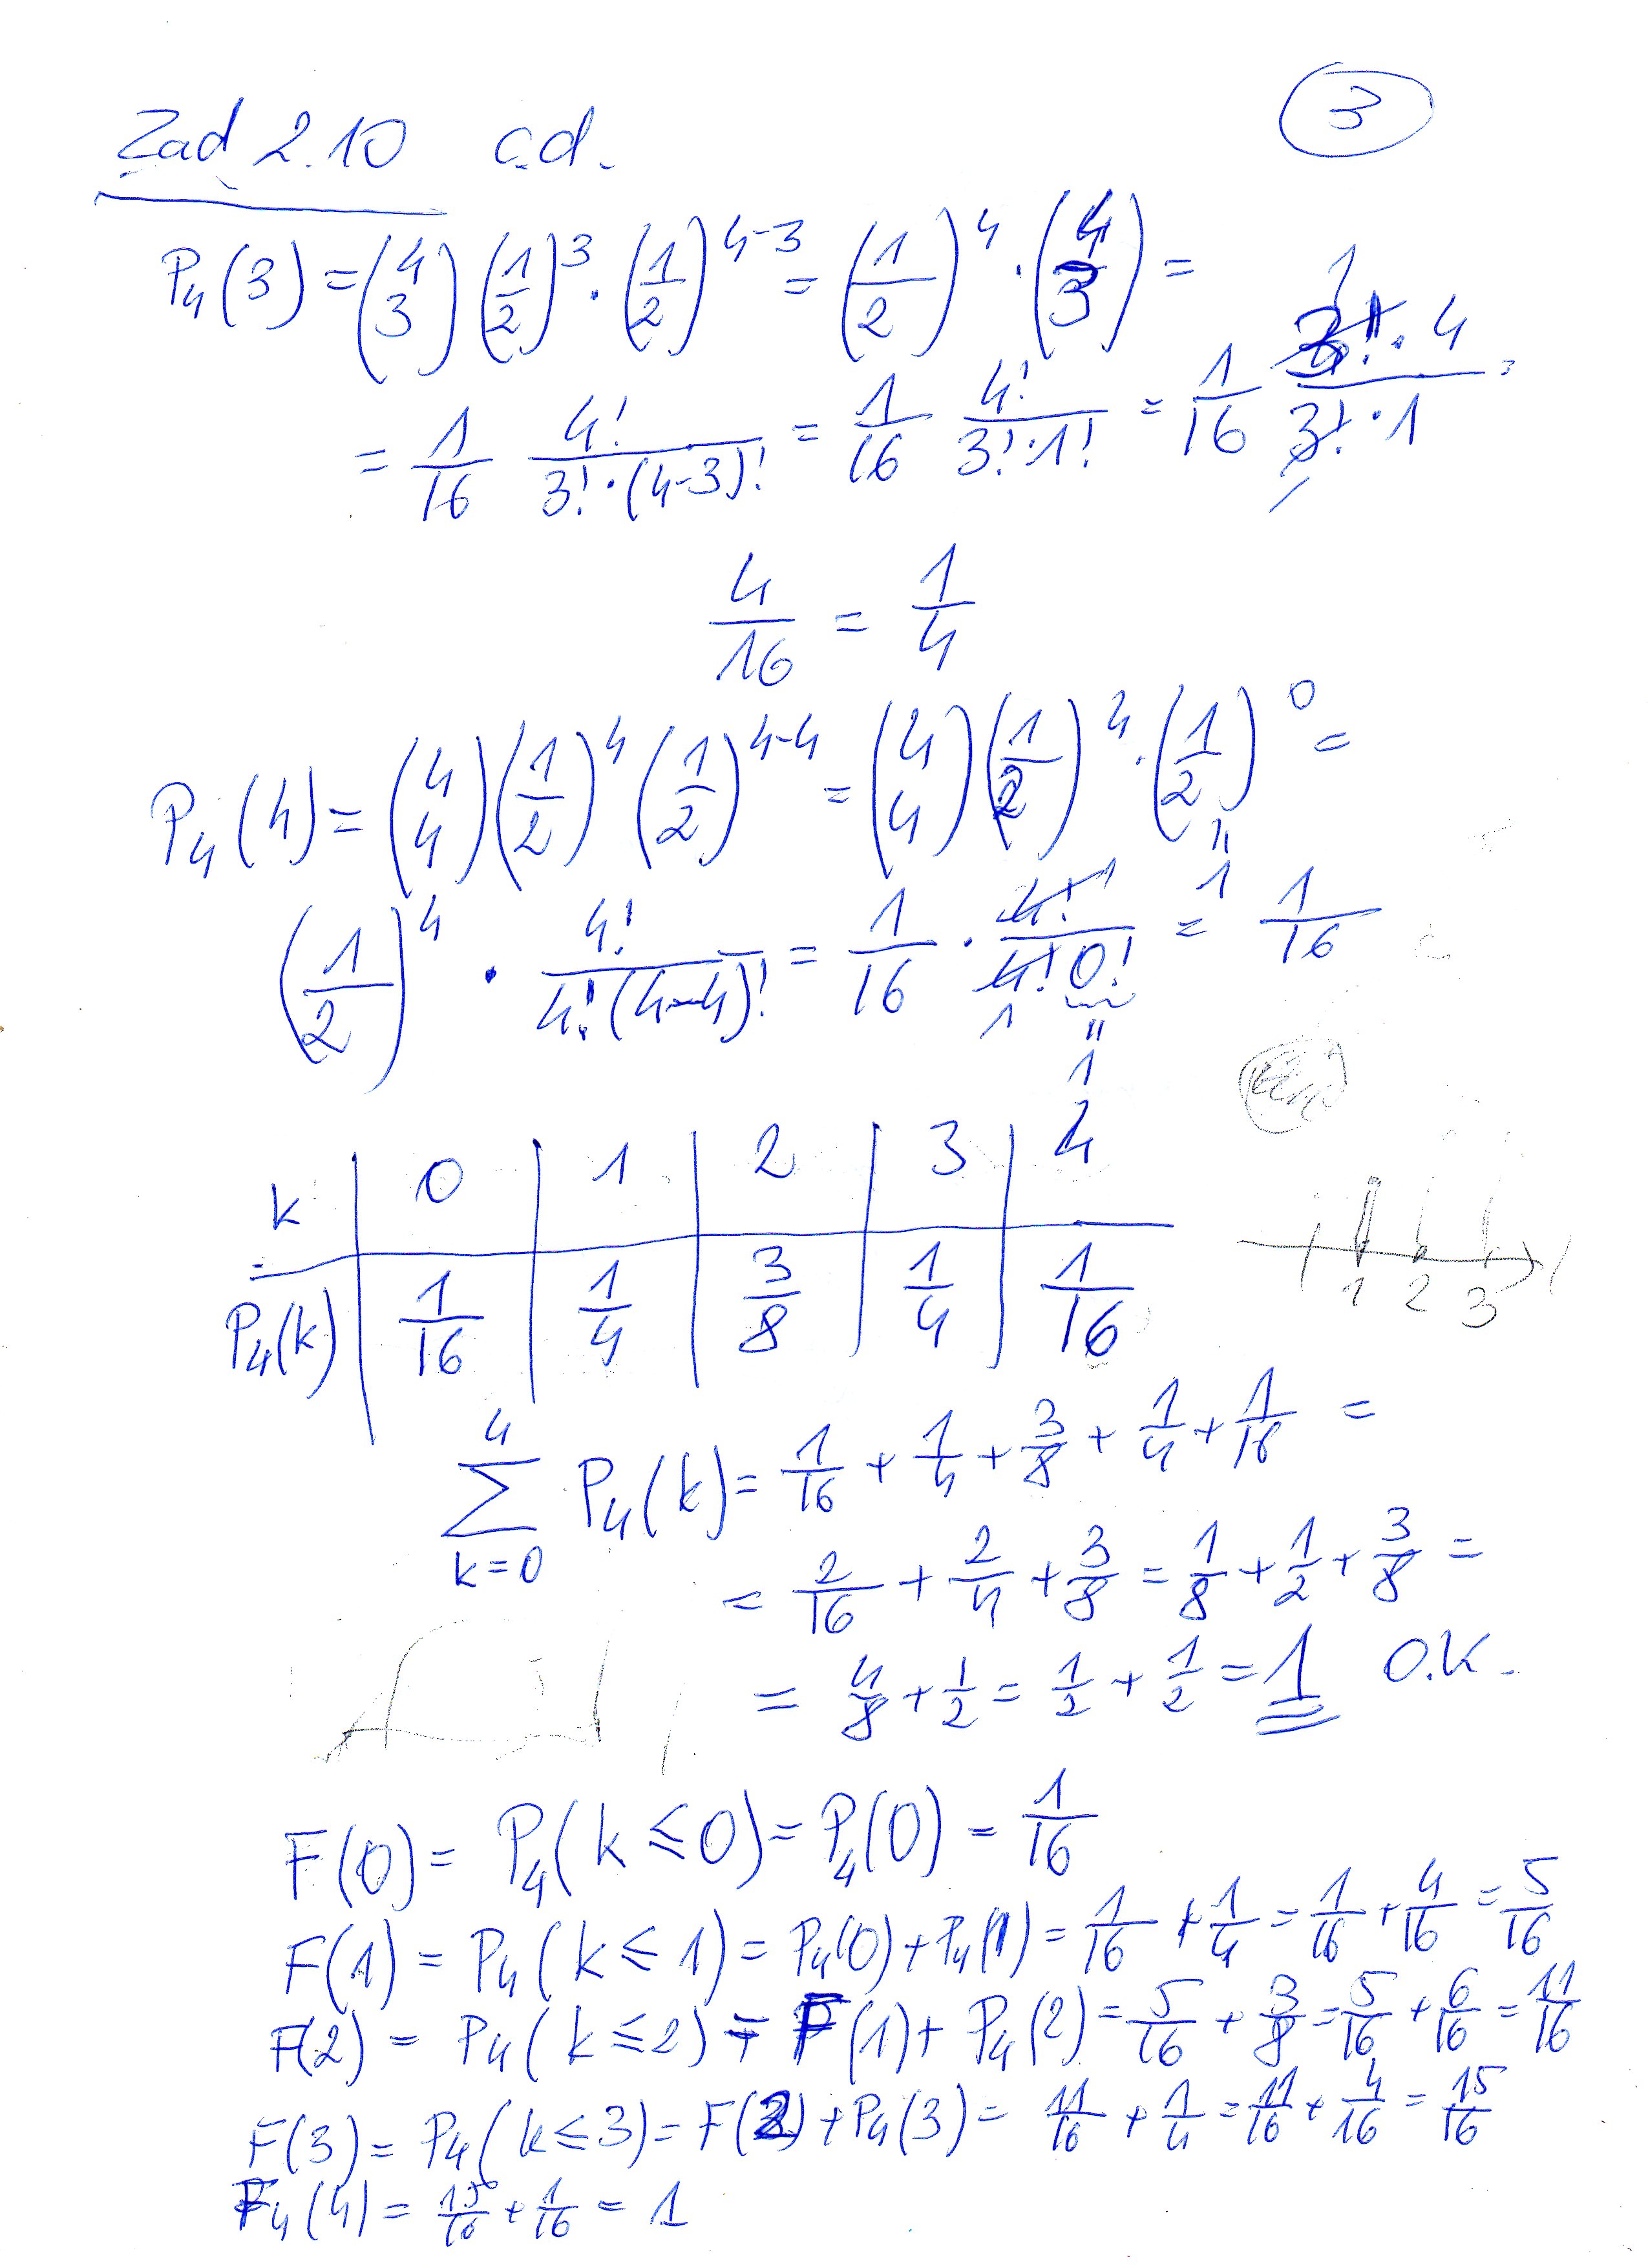 3
Zad 2.10 c.d.
P₄(3) = (4 3)(1/2)³ · (1/2)⁴⁻³ = (1/2)⁴ · (4 3) =
= 1/16 4!/(3!·(4-3)!) = 1/16 4!/(3!·1!) = 1/16 (3!·4)/(3!·1) =
4/16 = 1/4
P₄(4) = (4 4)(1/2)⁴(1/2)⁴⁻⁴ = (4 4)(1/2)⁴ · (1/2)⁰ =
(1/2)⁴ · 4!/(4!(4-4)!) = 1/16 · 4!/(4! 0!) = 1/16
k | 0 | 1 | 2 | 3 | 4
P₄(k) | 1/16 | 1/4 | 3/8 | 1/4 | 1/16
1 2 3
4 ∑ k=0 P₄(k) = 1/16 + 1/4 + 3/8 + 1/4 + 1/16 =
= 2/16 + 2/4 + 3/8 = 1/8 + 1/2 + 3/8 =
= 4/8 + 1/2 = 1/2 + 1/2 = 1 O.K.
F(0) = P₄(k ≤ 0) = P₄(0) = 1/16
F(1) = P₄(k ≤ 1) = P₄(0) + P₄(1) = 1/16 + 1/4 = 1/16 + 4/16 = 5/16
F(2) = P₄(k ≤ 2) = F(1) + P₄(2) = 5/16 + 3/8 = 5/16 + 6/16 = 11/16
F(3) = P₄(k ≤ 3) = F(2) + P₄(3) = 11/16 + 1/4 = 11/16 + 4/16 = 15/16
F₄(4) = 15/16 + 1/16 = 1